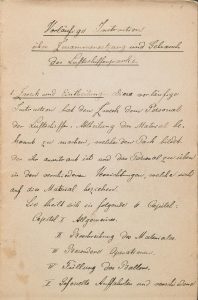 Vorläufige Instruction
über Zusammensetzung und Gebrauch
des Luftschifferparks
1 Zweck und Eintheilung. Diese vorläufige
Instruction hat den Zweck dem Personal
der Luftschiffer-Abtheilung das Material be-
kannt zu machen, welches den Park bildet
der ihr anvertraut ist und das Personal zu üben
in den verschiedenen Verrichtungen, welche sich
auf das Material beziehen.
Sie theilt sich in folgende 6 Capitel:
Capitel I Allgemeines.
II Beschreibung des Materiales.
III Besondere Operationen
IV Füllung des Ballons.
V Gefesselte Auffahrten und verschiedene